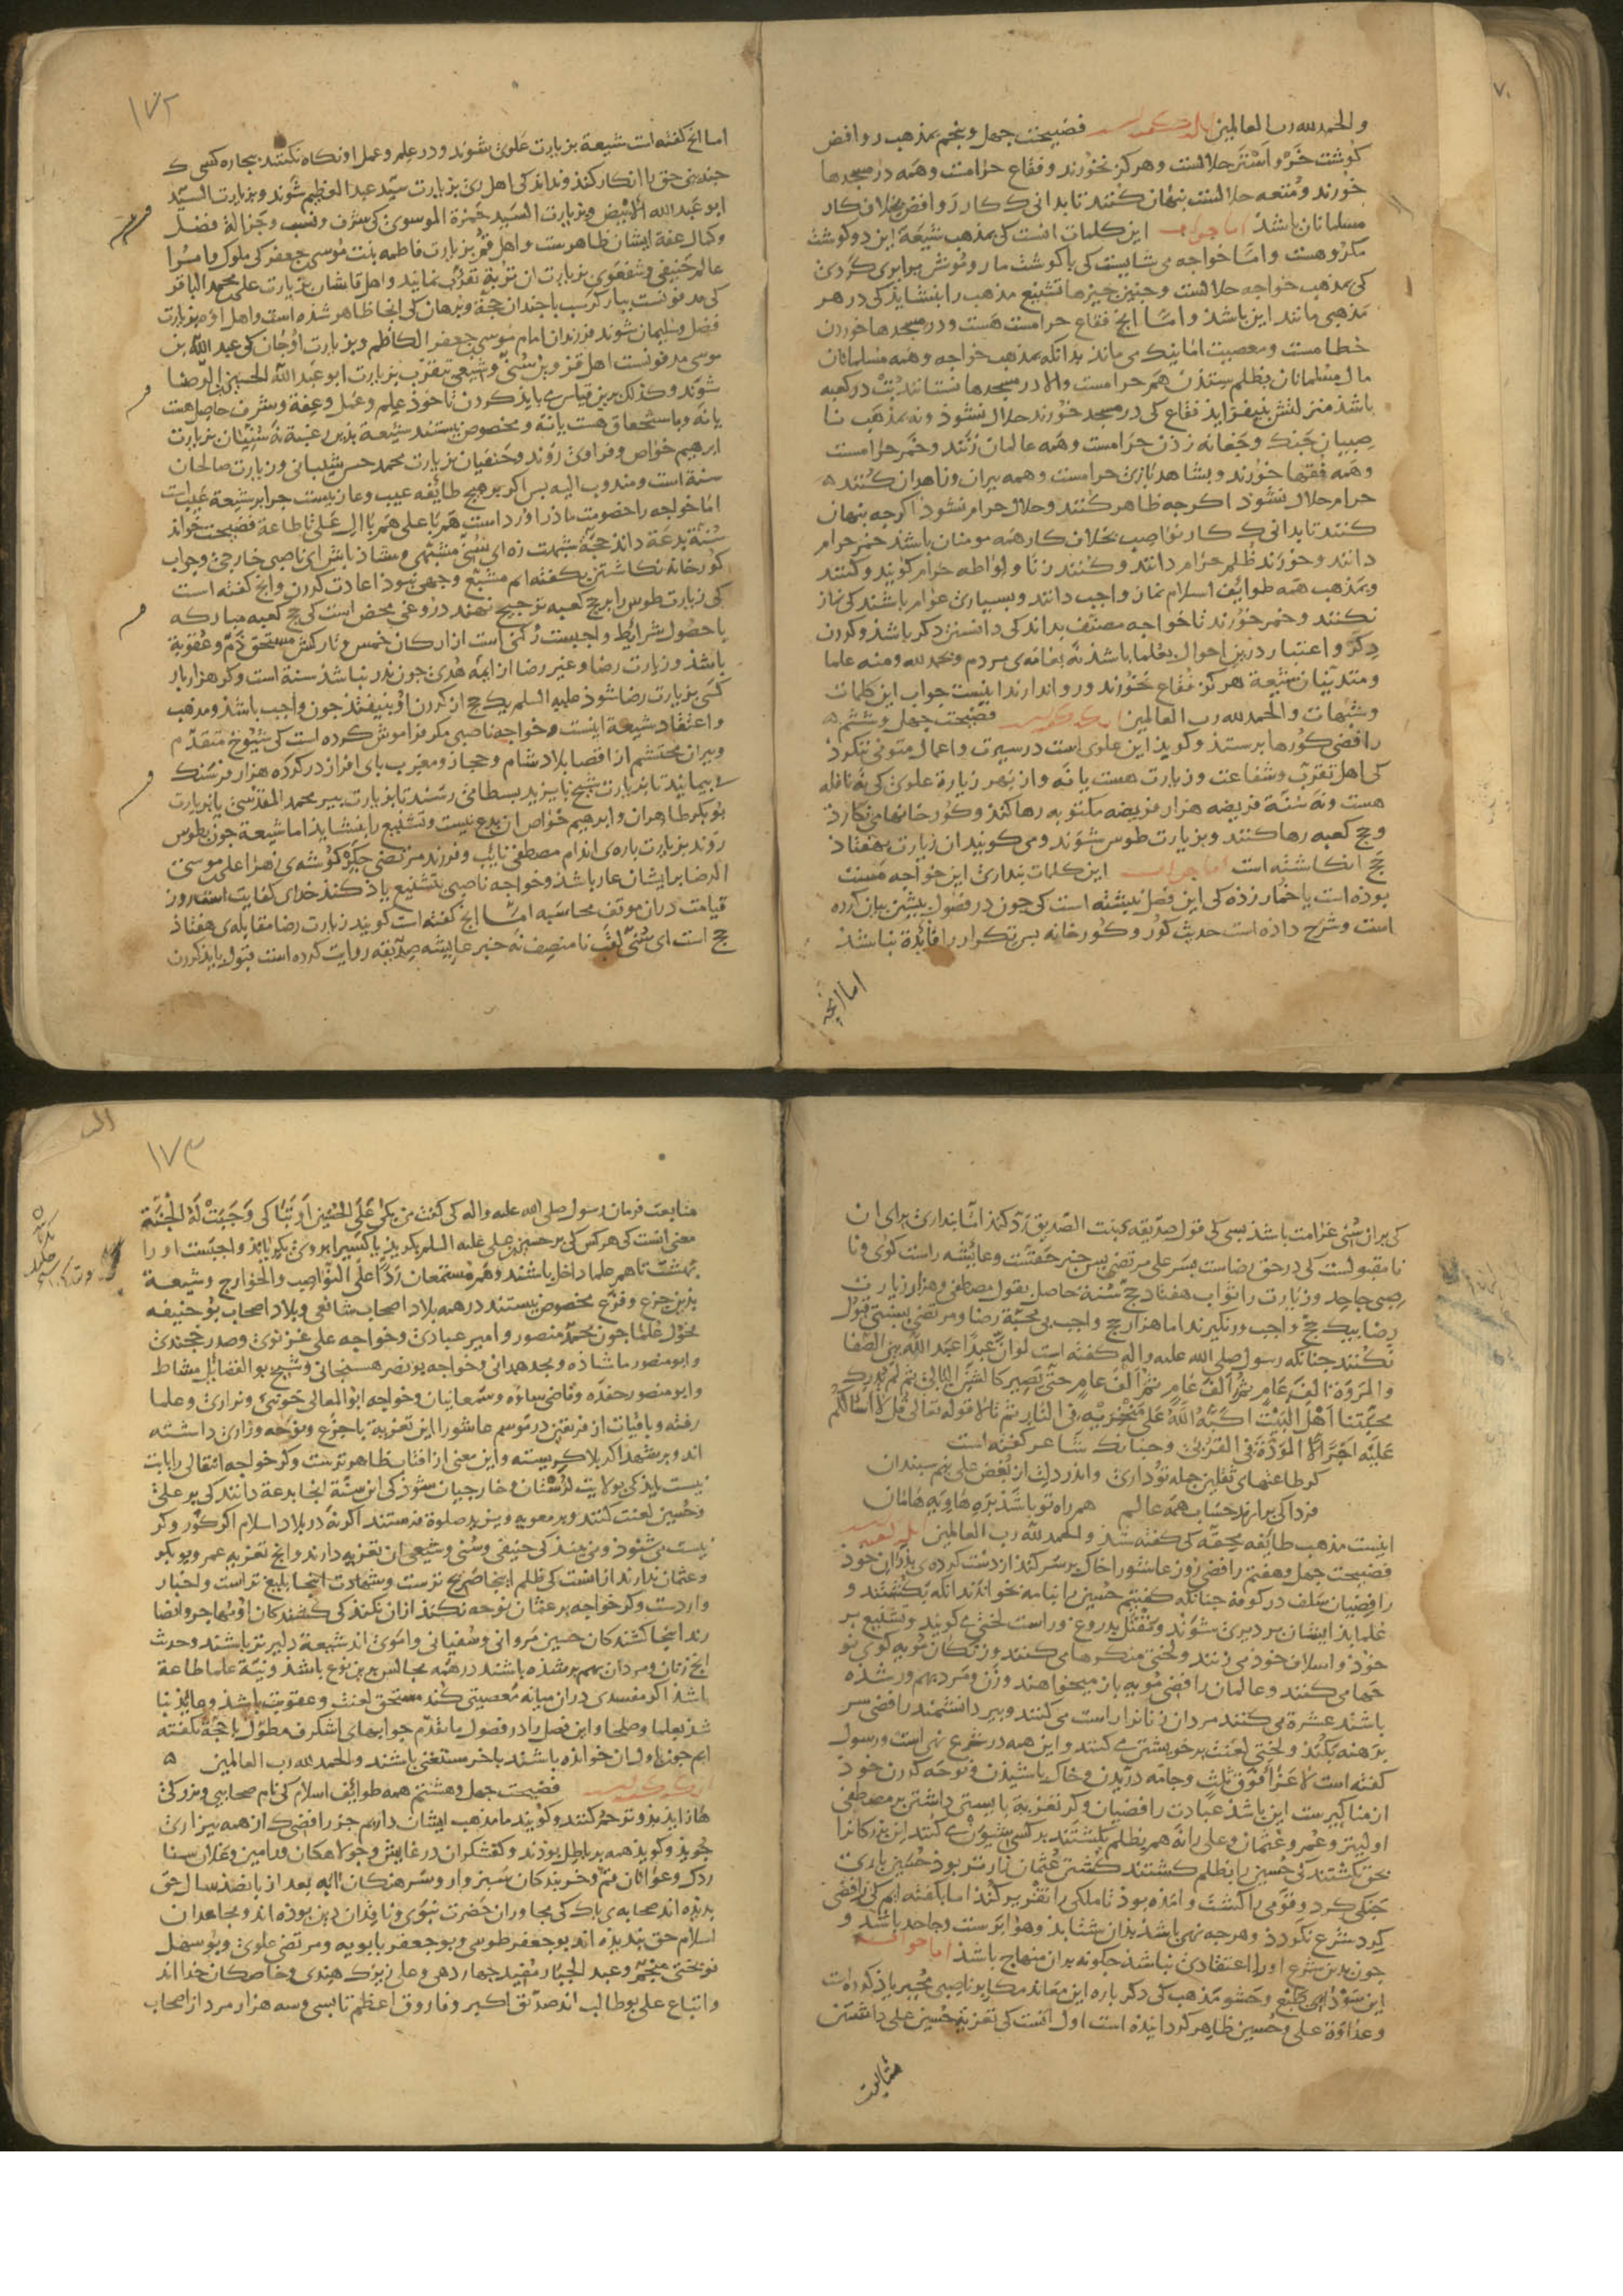 والحمد لله رب العالمین فضیحت جهل و پنجم بمذهب روافض
کوشت خر و اشتر حلالست وهرکز نخورند و فقاع حرامست وهمه در مسجدها
خورند و متعه حلالست بنهان کنند تا بدانی کـ کار روافض بخلاف کار
مسلمانان باشد اما جواب این کلمات انست کی بمذهب شیعة این دو کوشت
مکروهست و امّا خواجه می شایست کی با کوشت مار و موش برابری کردی
کی بمذهب خواجه حلالست و جنین جیزها تشنیع مذهب را بنشاید کی در هر
مذهبی مانند این باشد و امّا انج فقاع حرامست هست و در مسجدها خوردن
خطا مست و معصیت اما نیک می ماند بدانکه بمذهب خواجه وهمه مسلمانان
مال مسلمانان بظلم ستدن هم حرامست والا در مسجدها نستانند بت در کعبه
باشد منزلتش بنیفزاید فقاع کی در مسجد خورند حلال نشوذ و نه بمذهب نا
صبیان جنک و جغانه زدن حرامست وهمه عالمان زنند و خمر حرامست
وهمه فقها خورند و بشاهد بازی حرامست وهمه بیران و زاهدان کنند
حرام حلال نشوذ اکرجه ظاهر کنند و حلال حرام نشوذ اکرجه بنهان
کنند تا بدانی کـ کار نواصب بخلاف کار همه مومنان باشد خمر حرام
دانند و خورند ظلم حرام دانند و کنند زنا و لواطه حرام کویند و کنند
و بمذهب همه طوایف اسلام نماز واجب دانند و بسیاری عوام باشند کی نماز
نکنند و خمر خورند تا خواجه مصنف بداند کی دانستن دکر باشد و کردن
دکر و اعتبار درین احوال بعلما باشد نه بعامهٔ مردم و بحمدلله و منه علما
و متدینان شیعة هرکز فقاع نخورند و روا ندارند اینست جواب این کلمات
و شبهات والحمد لله رب العالمین فضیحت جهل و ششم
رافضی کورها برستد و کوید این علوی است در سیرت و اعمال متوفی ننکرد
کی اهل تقرب و شفاعت و زیارت هست یا نه و از بهر زیارة علوی کی نه نافله
هست و نه سنّة فریضه هزار فریضه مکتوبه رها کند و کورخانها می نکارد
و حج کعبه رها کنند و بزیارت طوس شوند و می کویند ان زیارت بهفتاد
حج انکاشته است اما جواب این کلمات بنداری این خواجه مست
بوذه است یا خمار زده کی این فصل نبشته است کی جون در فصول بیشین بیان کرده
است و شرح داده است حدیث کور و کورخانه بس تکرار را فایدة نباشد
اما انجه
۱۷۲
اما انج کفته است شیعة بزیارت علوی شوند و در علم و عمل او نکاه نکنند بیجاره کسی کـ
جندین حق را انکار کند و نداند کی اهل ری بزیارت سید عبد العظیم شوند و بزیارت السّید
ابو عبد الله الابیض و بزیارت السید حمزة الموسوی کی شرف و نسب و جزالة فضل
و کمال عفة ایشان ظاهرست و اهل قم بزیارت فاطمه بنت موسی جعفر کی ملوک و امرا
عالم حنیفی و شفعوی بزیارت ان تربة تقرب نمایند و اهل قاشان بزیارت علی محمد الباقر
کی مدفونست ببارکرسب با جندان حجة و برهان کی انجا ظاهر شده است و اهل اوه بزیارت
فضل و سلیمان شوند فرزندان امام موسی جعفر الکاظم و بزیارت اوجان کی عبد الله بن
موسی مدفونست اهل قزوین سنی و شیعی بتقرب بزیارت ابو عبد الله الحسین بن الرضا
شوند و کذلک برین قیاس می باید کردن تا خوذ علم و عمل و عفة و شرف حاصل هست
یا نه و باستحقاق هست یا نه و مخصوص نیستند شیعة بذین رغبة نه سنیان بزیارت
ابرهیم خواص و فراوی روند و حنفیان بزیارت محمد حسن شیبانی و زیارت صالحان
سنة است و مندوب الیه بس اکر بر هیج طایفه عیب و عار نیست جرا بر شیعة عیب است
اما خواجه را خصومت ماذراورد است هم با علی هم با ال علی تا طاعة فضیحت خواند
سنّة بدعة داند حجة شبهت زه ای سنی مشتهی و مشاذ باش ای ناصبی خارجی و جواب
کورخانه نکاشتن بکفته ایم مشبع و جهی نبوذ اعادت کردن و انج کفته است
کی زیارت طوس را بر حج کعبه ترجیح نهند دروغی محض است کی حج کعبه مبارکه
با حصول شرایط واجبست رکنی است از ارکان خمس و تارکش مستحق ذم و عقوبة
باشد و زیارت رضا و غیر رضا از ایمهٔ هدی جون نذر نباشد سنة است و کر هزار بار
کسی بزیارت رضا شوذ علیه السلم یک حج از کردن او بنیفتد جون واجب باشد و مذهب
و اعتقاد شیعة اینست و خواجه ناصبی مکر فراموش کرده است کی شیوخ متقدم
و بیران محتشم از اقصا بلاد شام و حجاز و مغرب بای افزار در کرده هزار فرسنک
می بیمایند تا بزیارت شیخ بایزید بسطامی رسند تا بزیارت بیر محمد المقدسی یا بزیارت
بوبکر طاهران و ابرهیم خواص ان بدع نیست و تشنیع را بنشاید اما شیعة جون بطوس
روند بزیارت باره‌ی اندام مصطفی نایب و فرزند مرتضی جکر کوشه‌ی زهرا علی موسی
الرضا بر ایشان عار باشد و خواجه ناصبی بتشنیع یاذ کند خدای کفایت است روز
قیامت دران موقف محاسبه امّا انج کفته است کویند زیارت رضا مقابله‌ی هفتاذ
حج است ای سنی لقب نامنصف نه خبر عایشه صدیقه روایت کرده است قبول باید کردن
کی بران سنی غرامت باشد بسی کی قول صدیقه‌ی بنت الصدیق رد کند امّا بنداری برای ان
نامقبولست کی در حق رضاست بسر علی مرتضی بس خبر حقست و عایشه راست کوی و نا
صبی جاحد و زیارت را ثواب هفتاد حج سنّة حاصل بقول مصطفی و هزار زیارت
رضا بیک حج واجب ورنکیرند اما هزار حج واجب بی محبّة رضا و مرتضی بنیم بستی قبول
نکنند جنانکه رسول صلی الله علیه و اله کفته است لو انّ عبدا عبد الله بین الصفا
والمروة الف عام ثم الف عام ثم الف عام حتی تصیر کالشن البالی ثم لم یدرک
محبتنا اهل البیت اکبه الله علی منخریه فی النار ثم تلا قوله تعالی قل لا اسالکم
علیه اجرا الا المودة فی القربی و جنانک شاعر کفته است
کر طاعتهای ثقلین جمله تو داری واندر دلت از بغض علی نیم سبندان
فردا کی برارند حساب همه عالم همراه تو باشد بره هاویه هامان
اینست مذهب طایفه محقه کی کفته شد والحمد لله رب العالمین
فضیحت جهل و هفتم رافضی روز عاشورا خاک بر سر کند از دست کرده‌ی بدران خوذ
رافضیان سلف در کوفه جنانکه کفتیم حسین را بنامه بخواندند انکه بکشتند و
علما بذ ایشان بر دیری شوند و مقتل بدروغ و راست لختی می کویند و تشنیع بر
خوذ و اسلاف خوذ می زنند و لختی منکرها می کنند و زنکان مویه کوی نو
حها می کنند و عالمان رافضی مویه باز میخواهند و زن و مرد بهم ور شده
باشند عشرة می کنند مردان زنانرا راست می کنند و بیر دانشمند رافضی سر
برهنه بکند و لختی لعنت بر خویشتن می کنند و این همه در شرع نهی است و رسول
کفته است لا عزاء فوق ثلث و جامه دریدن و خاک باشیدن و نوحه کردن خوذ
از مناکیرست این باشد عبادت رافضیان و کر تعزیة بایستی داشتن بر مصطفی
اولیتر و عمر و عثمان و علی را نه هم بظلم بکشتند بر کس شیون می کنند این بزرکانرا
بحق بکشتند کی حسین را بظلم کشتند کشتن عثمان زارتر بوذ حسین باری
جنکی کرد و قومی را کشت و امذه بوذ تا ملکی را تقریر کند اما با کفته ایم کی رافضی
کرد شرع نکردد و هرجه نهی باشد بذان شتابذ و هواپرست و جاحد باشد و
جون بدین شرع او را اعتقادی نباشد جکونه بدان منهاج باشد اما جواب
این سؤال طبع و حشو مذهب کی دکر باره این معاند مکابر ناصبی مجبر یاذ کرده است
و عداوة علی و حسین ظاهر کردانیده است اول انست کی تعزیة حسین علی داشتن
متابعت
۱۷۳
متابعت فرمان رسول صلی الله علیه و اله کی کفت من بکی علی الحسین او تباکی وجبت له الجنة
معنی انست کی هرکس کی بر حسین علی علیه السلم بکرید یا کسی را بروی بکریاند واجبست او را
بهشت تا هم علما داخل باشند و هم مستمعان ردا علی النواصب والخوارج و شیعة
بذین جزع و فزع مخصوص نیستند در همه بلاد اصحاب شافعی و بلاد اصحاب بوحنیفه
فحول علما جون محمد منصور و امیر عبادی و خواجه علی غزنوی و صدر خجندی
و ابو منصور ماشاذه و مجد همدانی و خواجه بونصر هسنجانی و شیخ بوالفضایل مشاط
و ابو منصور حفده و قاضی ساوه و سمعانیان و خواجه ابوالمعالی جوینی و نزاری و علما
رفته و باقیان از فریقین در موسم عاشورا این تعزیة با جزع و نوحه و زاری داشته
اند و بر شهدا کربلا کریسته و این معنی از افتاب ظاهرترست و کر خواجه انتقالی را بابت
نیست باید کی بولایت لرستان و خارجیان شوذ کی این سنة انجا بدعة دانند کی بر علی
و حسین لعنت کنند و بر معویه و یزید صلوة فرستند اکرنه در بلاد اسلام اکر کور و کر
نیست می شنود و می بیند کی حنیفی و سنی و شیعی ان تعزیه دارند و انج تعزیه عمر و بوبکر
و عثمان ندارند از انست کی ظلم اینجا صریح ترست و شهادت اینجا بلیغ تر است و اخبار
واردست و کر خواجه بر عثمان نوحه نکند ازان نکند کی کشندکان او مهاجر و انصا
رند اینجا کشندکان حسین مروانی و سفیانی و اموی اند شیعة دلیرتر باشند و حدیث
انج زنان و مردان بهم بر شده باشند در همه مجالس برین نوع باشد و نیّة علما طاعة
باشد اکر مفسدی دران میانه معصیتی کند مستحق لعنت و عقوبت باشد و عاید نبا
شد بعلما و صلحا و این فصل را در فصول ما تقدم جوابهای شکرف مطول با حجة بکفته
ایم جون اول ان خوانده باشند باخر مستغنی باشند والحمد لله رب العالمین
فضیحت جهل و هشتم همه طوایف اسلام کی نام صحابی و بزرکی
فاز اید برو ترحم کنند و کویند ما مذهب ایشان داریم جز رافضی کـ از همه بیزاری
جوید و کوید همه بر باطل بوذند و کفشکران درغایش و جولاهکان ورامین و غلان سنا
ردک و عوانان قم و خربندکان سبزوار و سرهنکان ابه بعد از بانصد سال حق
بدیده اند صحابه‌ی باک کی مجاوران حضرت نبوی و ناقدان دین بوذه اند و مجاهدان
اسلام حق ندیذه اند بوجعفر طوسی و بوجعفر بابویه و مرتضی علوی و بوسهل
نوبختی منجم و عبد الجبار مفید جهاردهی و علی زیرک هندی و خاصکان خدا اند
و اتباع علی بوطالب اند صدیق اکبر و فاروق اعظم تا بسی و سه هزار مرد از اصحاب